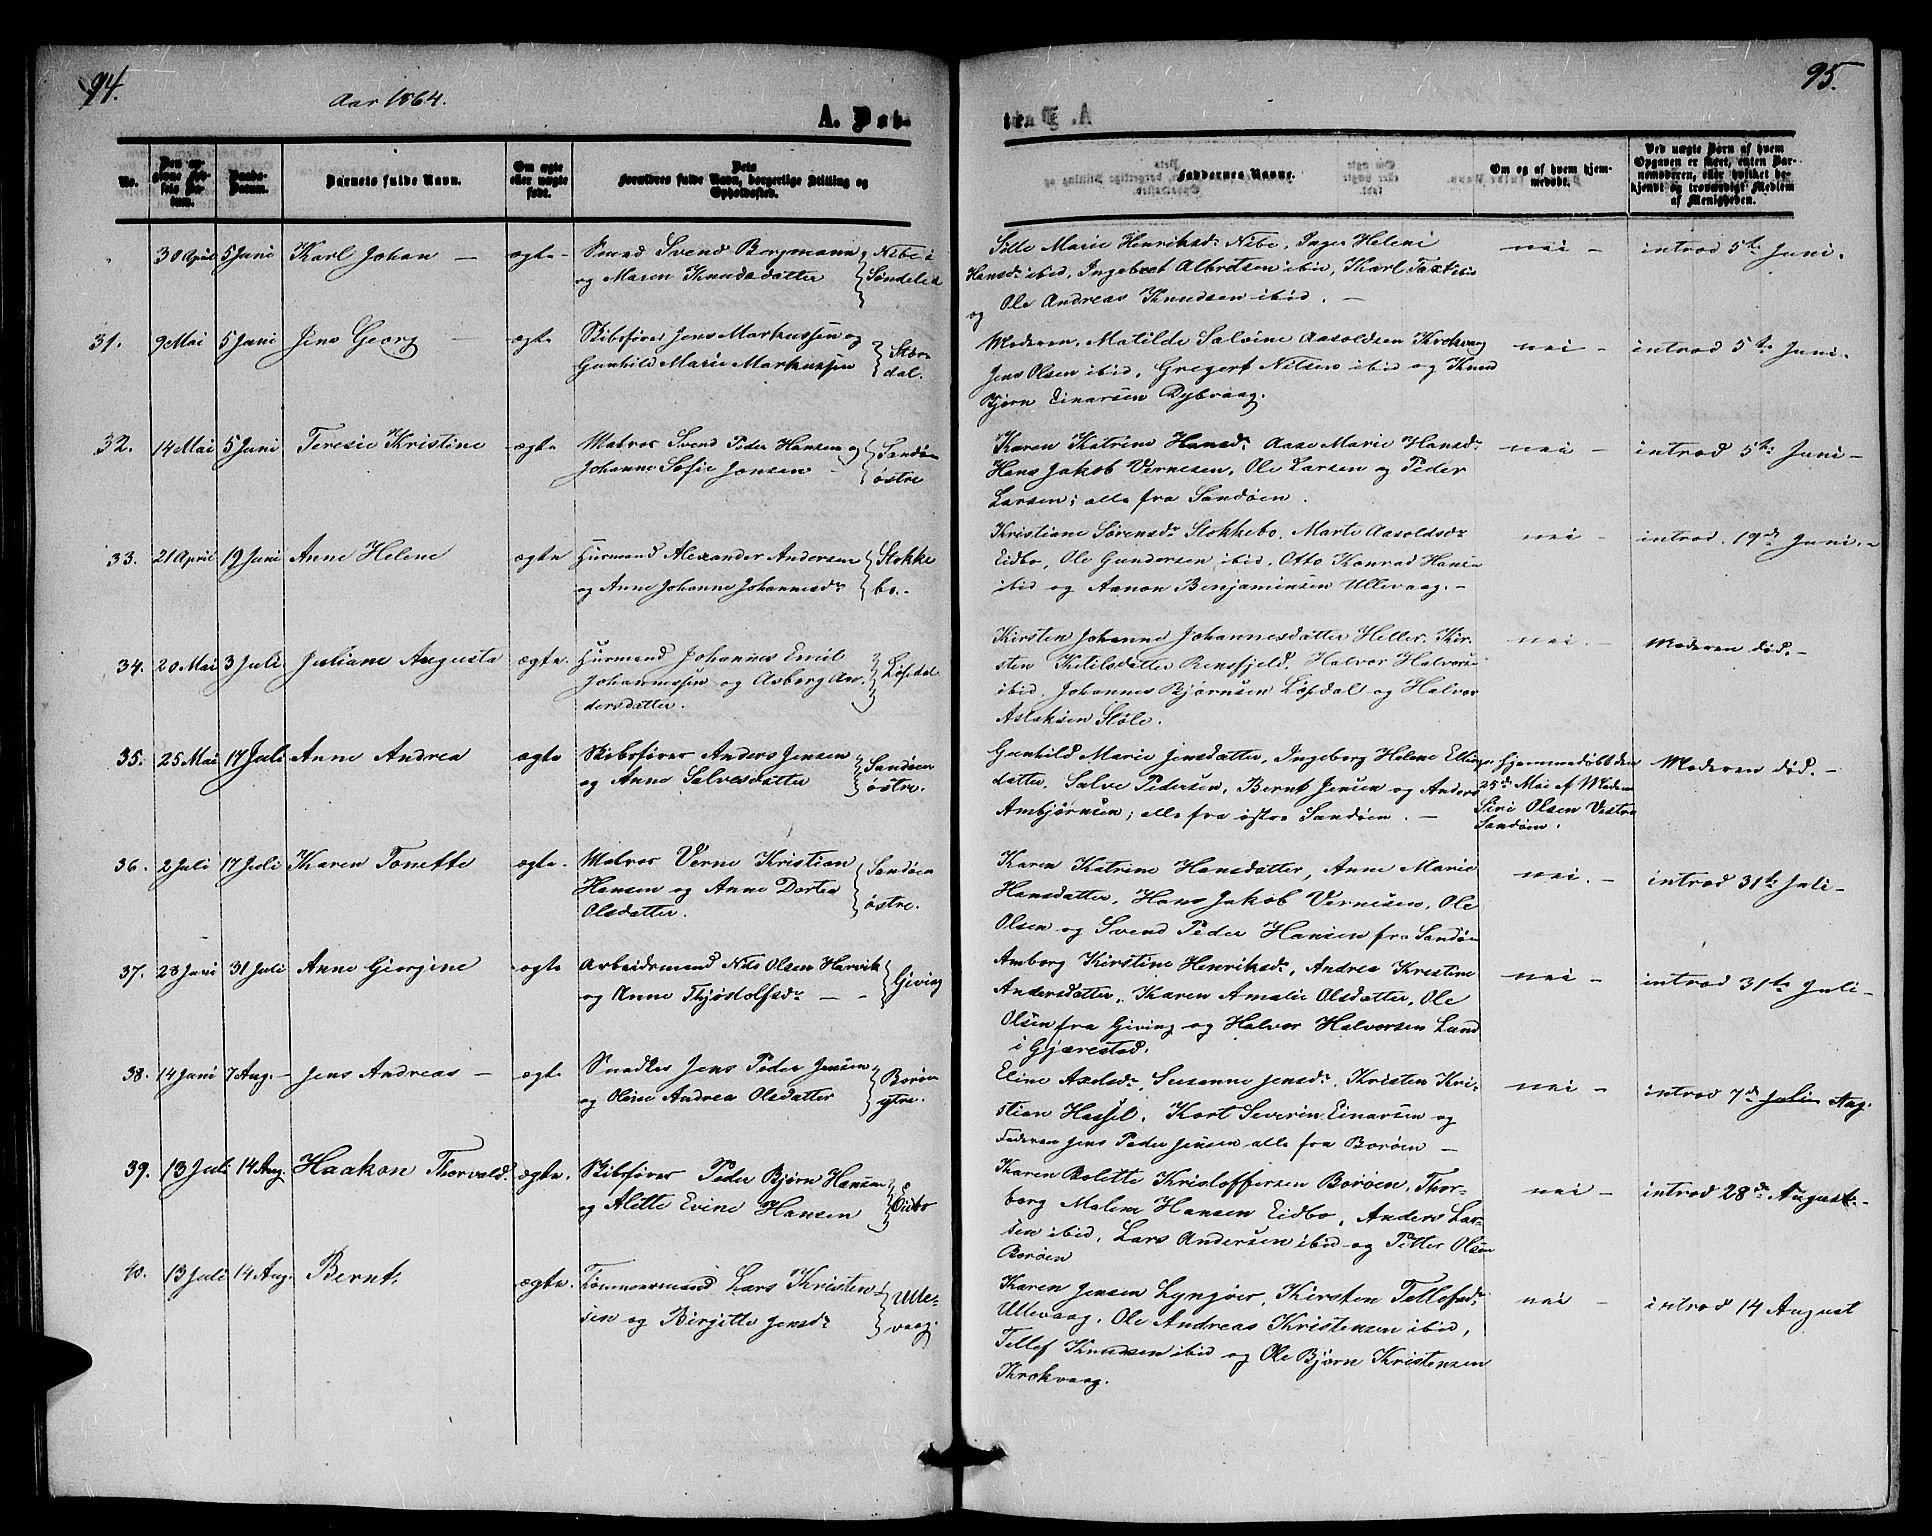 94.
Aar 1864.
A. Fød-
No.
Barnets fulde Navn.
Om ægte eller uægte født.
Forældres fulde Navn, borgerlige Stilling og Opholdssted.
30 April 5 Juni Karl Johan — ægte — Smed Svend Bergmann og Maren Knudsdatter Nibe i Søndeled
31. 9 Mai 5 Juni Jens Georg — ægte Skibsfører Jens Markussen og Gunhild Marie Markussen
32. 14 Mai 5 Juni Teresie Kristine ægte Matros Svend Peder Hansen og Johanne Sofie Jonsen — Sandøen østre
33. 21 April 19 Juni Anne Helene ægte Huusmand Alexander Andersen og Anne Johanne Johannesdr Stokkebo. -
34. 20 Mai 3 Juli Juliane Augusta ægte. Huusmand Johannes Emil Johannessen og Asborg Andersdatter. Løpdal
35. 25 Mai 17 Juli Anne Andrea ægte Skibsfører Anders Jensen og Anne Salvesdatter Sandøen østre.
36. 2 Juli 17 Juli Karen Tonette ægte. Matros Verne Kristian Hansen og Anne Dortea Olsdatter. Sandøen østre.
37. 28 Juni 31 Juli Anne Georgine ægte Arbeidsmand Nils Olsen Harvik og Anne Thjøstolfsdr — Giving
38. 14 Juni 7 Aug. - Jens Andreas — ægte Snedker Jens Peder Jensen og Oline Andrea Olsdatter Borøen ytre.
39. 13 Juli 14 Aug. Haakon Thorvald. ægte. Skibsfører Peder Bjørn Hansen og Alette Evine Hansen Eidbo
40. 13 Juli 14 Aug. Bernt. ægte. Tømmermand Lars Kristensen og Birgitte Jensdr Ullevaag.
95.
te.
Faddernes Navne.
Om og af hvem hjemmedøbt.
Ved uægte Børn af hvem Opgaven er skeet, enten Barnemoderen, eller hvilket bekjendt og troværdigt Medlem af Menigheden.
Marie Henriksdr Nibe, Inger Helene
Hansdr ibid, Ingebret Albretsen ibid, Karl
og Ole Andreas Knudsen ibid. —
nei — introd 5te Juni.
Moderen, Matilde Salvine Aasoldsen Krokvaag
Jens Olsen ibid, Gregert Nilsen ibid og Knud
Bjørn Einarsen Dybvaag.
nei — introd 5te Juni.
Karen Katrine Hansdr Aase Marie Hansdr
Hans Jakob Vernesen, Ole Larsen og Peder
Larsen; alle fra Sandøen.
nei — introd 5te Juni —
Kristiane Sørensdr Stokkebo, Marte Aasoldsdr
Eidbo, Ole Gundersen ibid, Otto Konrad Hansen
ibid og Aanon Benjaminsen Ullevaag. -
nei — introd. 19de Juni. -
Kirsten Johanne Johannesdatter Heller, Kir-
sten Ketilsdatter Rensfjeld, Halvor Halvorsen
ibid, Johannes Bjørnsen Løpdal og Halvor
Aslaksen Støle.
nei. — Moderen død. -
Gunhild Marie Jensdatter, Ingeborg Helene
datter, Salve Pedersen, Bernt Jensen og Anders
Ambjørnsen; alle fra østre Sandøen. —
Hjemmedøbt den
25de Mai af
Siri Olsen Vestre
Sandøen.
Moderen død. -
Karen Katrine Hansdatter, Anne Marie
Hansdatter, Hans Jakob Vernesen, Ole
Olsen og Svend Peder Hansen fra Sandøen
nei. — introd 31te Juli -
Amborg Kirstine Henriksdr, Andrea Kristine
Andersdatter, Karen Amalie Olsdatter, Ole
Olsen fra Giving og Halvor Halvorsen Lund
i Gjærestad.
nei — introd 31te Juli -
Eline Axelsdr, Susanne Jensdr, Kristen Kri-
stian Hassel, Kort Severin Einarsen og
Faderen Jens Peder Jensen alle fra Borøen —
nei — introd 7de Juli Aug.
Karen Bolette Kristoffersen Borøen, Thor-
borg Malene Hansen Eidbo, Anders Lar-
sen ibid, Lars Andersen ibid og Petter Olsen
Borøen
nei — introd 28de August. -
Karen Jensen Lyngøer, Kirsten Tellefsdr
Ullevaag, Ole Andreas Kristensen ibid,
Tellef Knudsen ibid og Ole Bjørn Kristensen
Krokvaag.
nei — introd 14 August